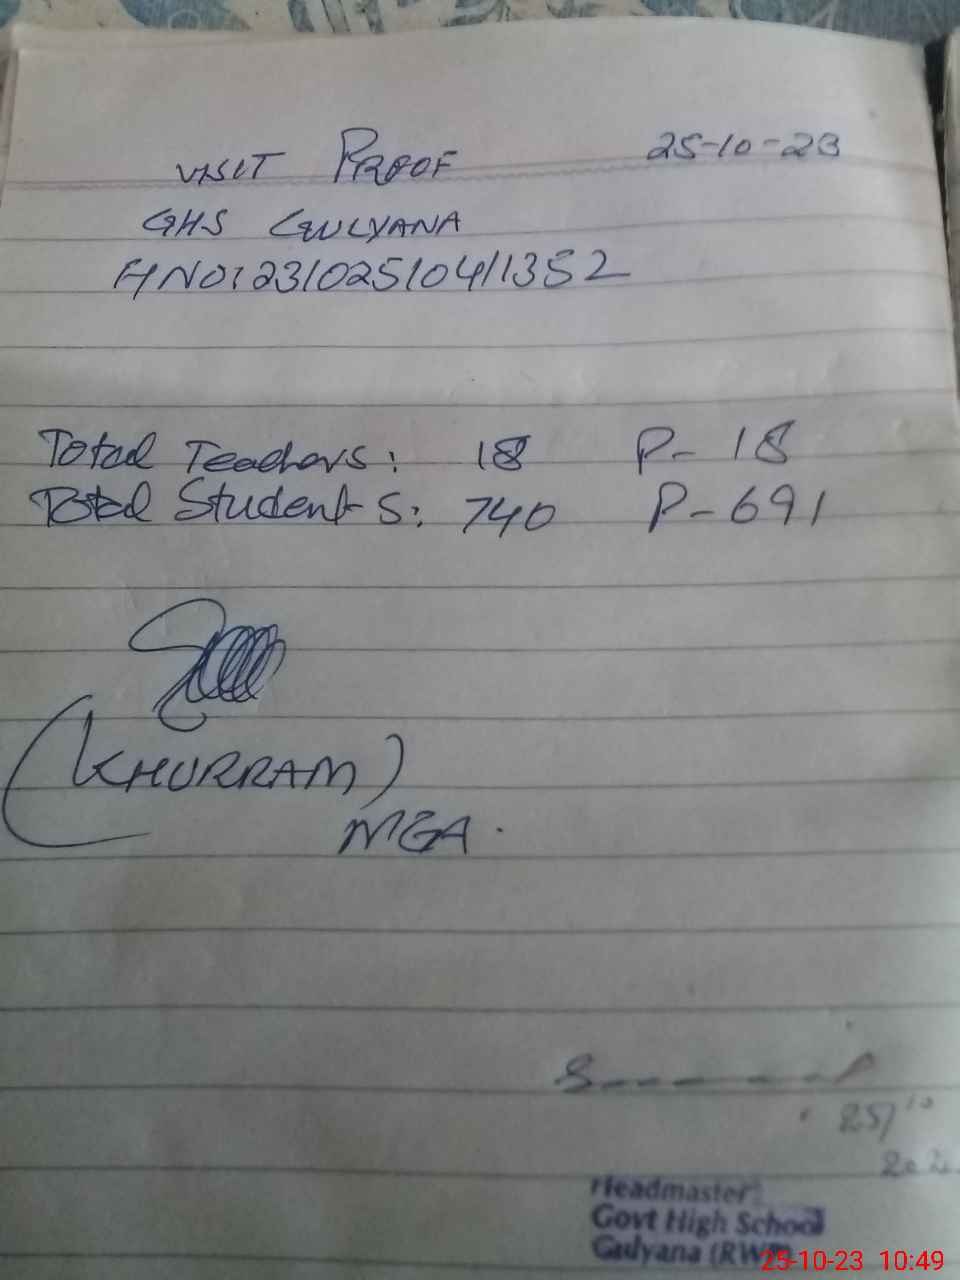 VISIT PROOF 25-10-23
GHS GULYANA
Total Teachers: 18 P- 18
Total Students: 740 P- 691
(KHURRAM)
MGA.
25/10
Headmaster
Govt High School
Gulyana (RWP)
25-10-23 10:49